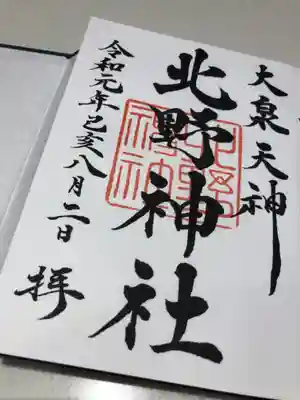 大泉天神
北野神社
令和元年己亥八月二日
拝